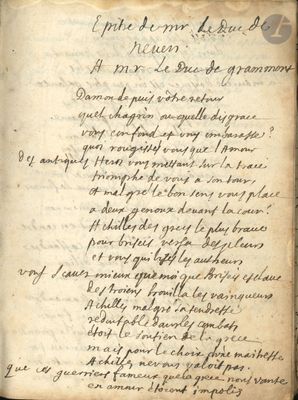 Epitre de mr Le Duc de
neuers
A mr Le Duc de grammont
Damon depuis vôtre retour
quel chagrin ou quelle disgrace
vous confond et vous embarasse?
quoi rougissés vous que l'amour
des antiques Heros vous mettant sur la trace
triomphe de vous a son tour
et malgré le bon sens vous place
a deux genoux deuant la cour?
Achilles des grecs le plus braue
pour briseis versa des pleurs
et vous qui les autheurs
vous scaués mieux que moi que Briseis esclaue
des troiens brouilla les vainqueurs
Achilles malgré sa tendresse
redoutable dans les combats
étoit le soutien de la grece
mais pour le choix d'une maitresse
Achilles ne vous valoit pas.
que ces guerriers fameux que la grece nous vante
en amour étoient impolis